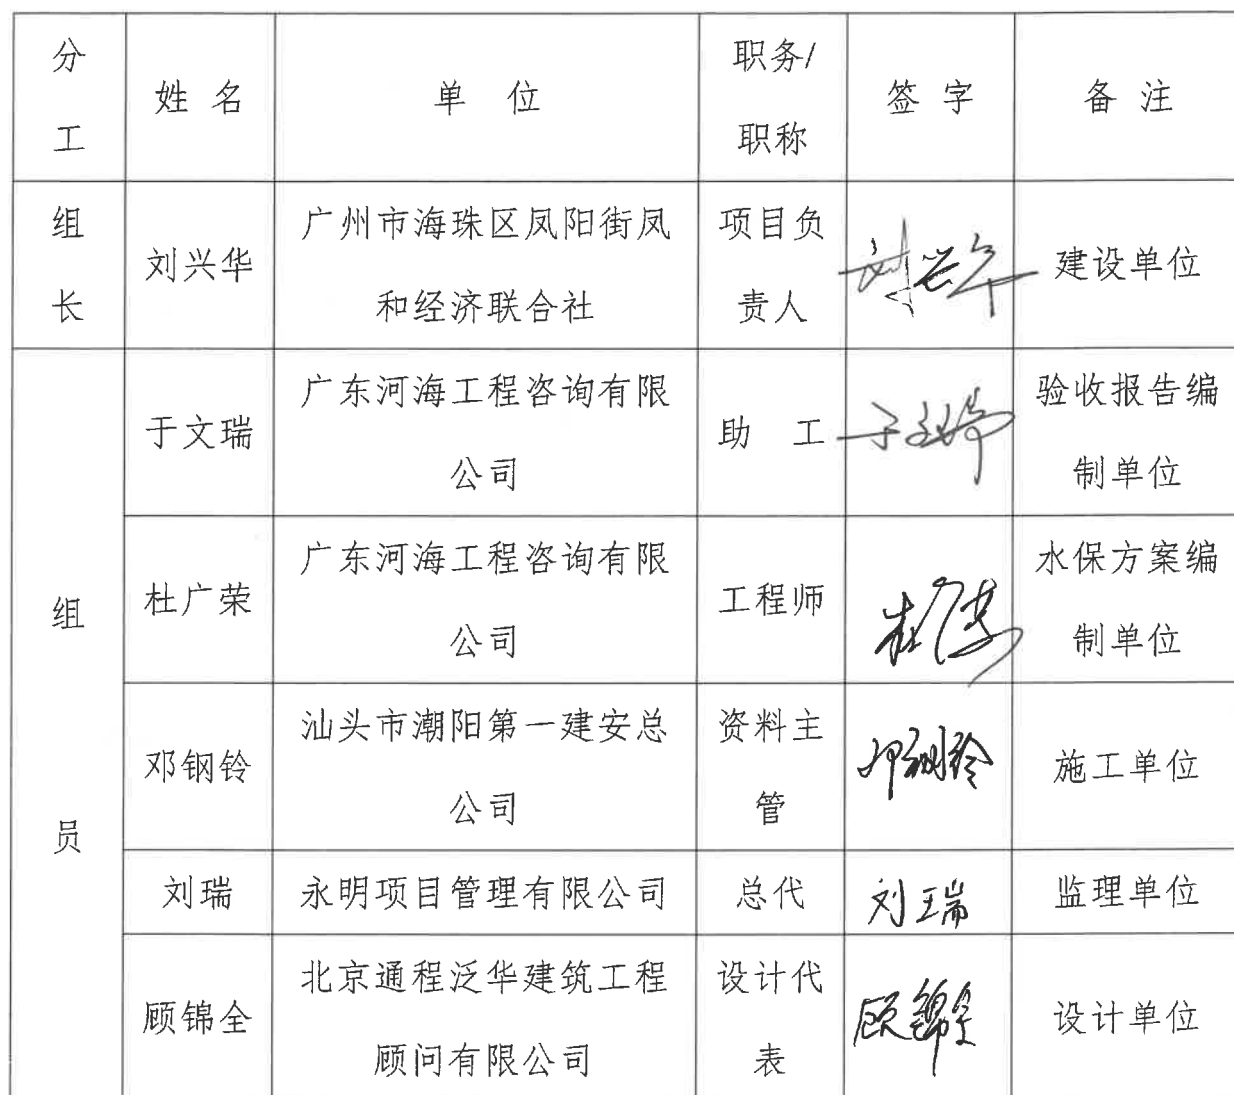 分工 姓名 单位 职务/职称 签字 备注
组长 刘兴华 广州市海珠区凤阳街凤和经济联合社 项目负责人 刘兴华 建设单位
组员 于文瑞 广东河海工程咨询有限公司 助工 于文瑞 验收报告编制单位
杜广荣 广东河海工程咨询有限公司 工程师 杜广荣 水保方案编制单位
邓钢铃 汕头市潮阳第一建安总公司 资料主管 邓钢铃 施工单位
刘瑞 永明项目管理有限公司 总代 刘瑞 监理单位
顾锦全 北京通程泛华建筑工程顾问有限公司 设计代表 顾锦全 设计单位